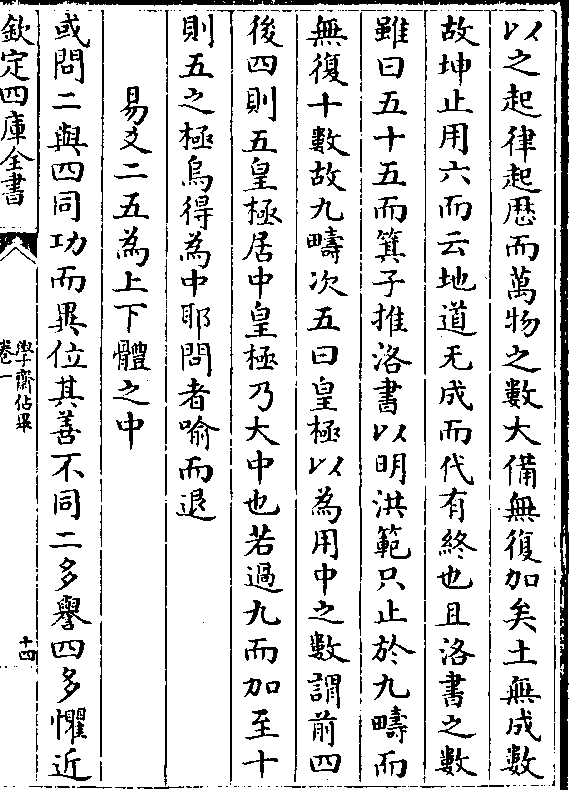 以之起律起厯而萬物之數大備無復加矣土無成數
故坤止用六而云地道无成而代有終也且洛書之數
雖曰五十五而箕子推洛書以明洪範只止於九疇而
無復十數故九疇次五曰皇極以為用中之數謂前四
後四則五皇極居中皇極乃大中也若過九而加至十
則五之極烏得為中耶問者喻而退
易爻二五為上下體之中
或問二與四同功而異位其善不同二多譽四多懼近
欽定四庫全書
學齋佔畢
卷一
十四